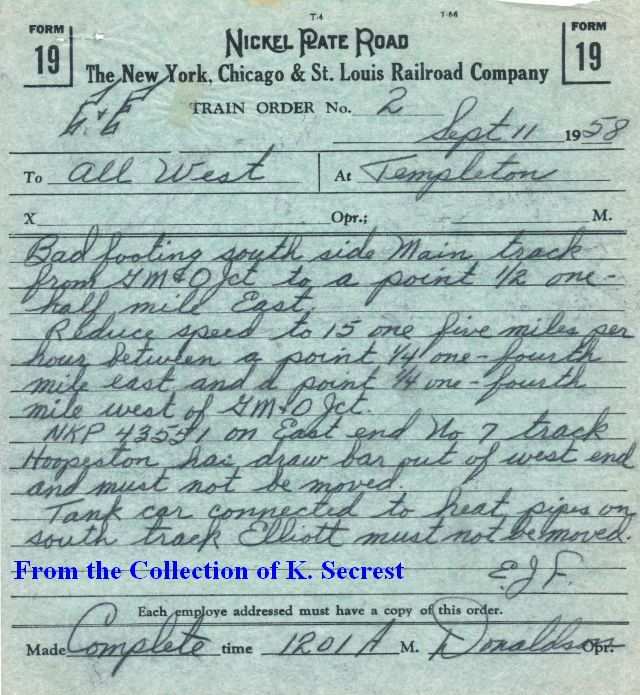 T-4 7-56
FORM
19
NICKEL PLATE ROAD
FORM
19
The New York, Chicago & St. Louis Railroad Company
TRAIN ORDER No. 2
Sept 11 1958
To All West At Templeton
X Opr.; M.
Bad footing south side Main track
from GM&O Jct to a point 1/2 one-
half mile East.
Reduce speed to 15 one five miles per
hour between a point 1/4 one-fourth
mile east and a point 1/4 one-fourth
mile west of GM&O Jct.
NKP 43551 on East end No 7 track
Hoopeston has draw bar out of west end
and must not be moved.
Tank car connected to heat pipes on
south track Elliott must not be moved.
From the Collection of K. Secrest
E.J.F.
Each employe addressed must have a copy of this order.
Made Complete time 1201 A M. Donaldson Opr.